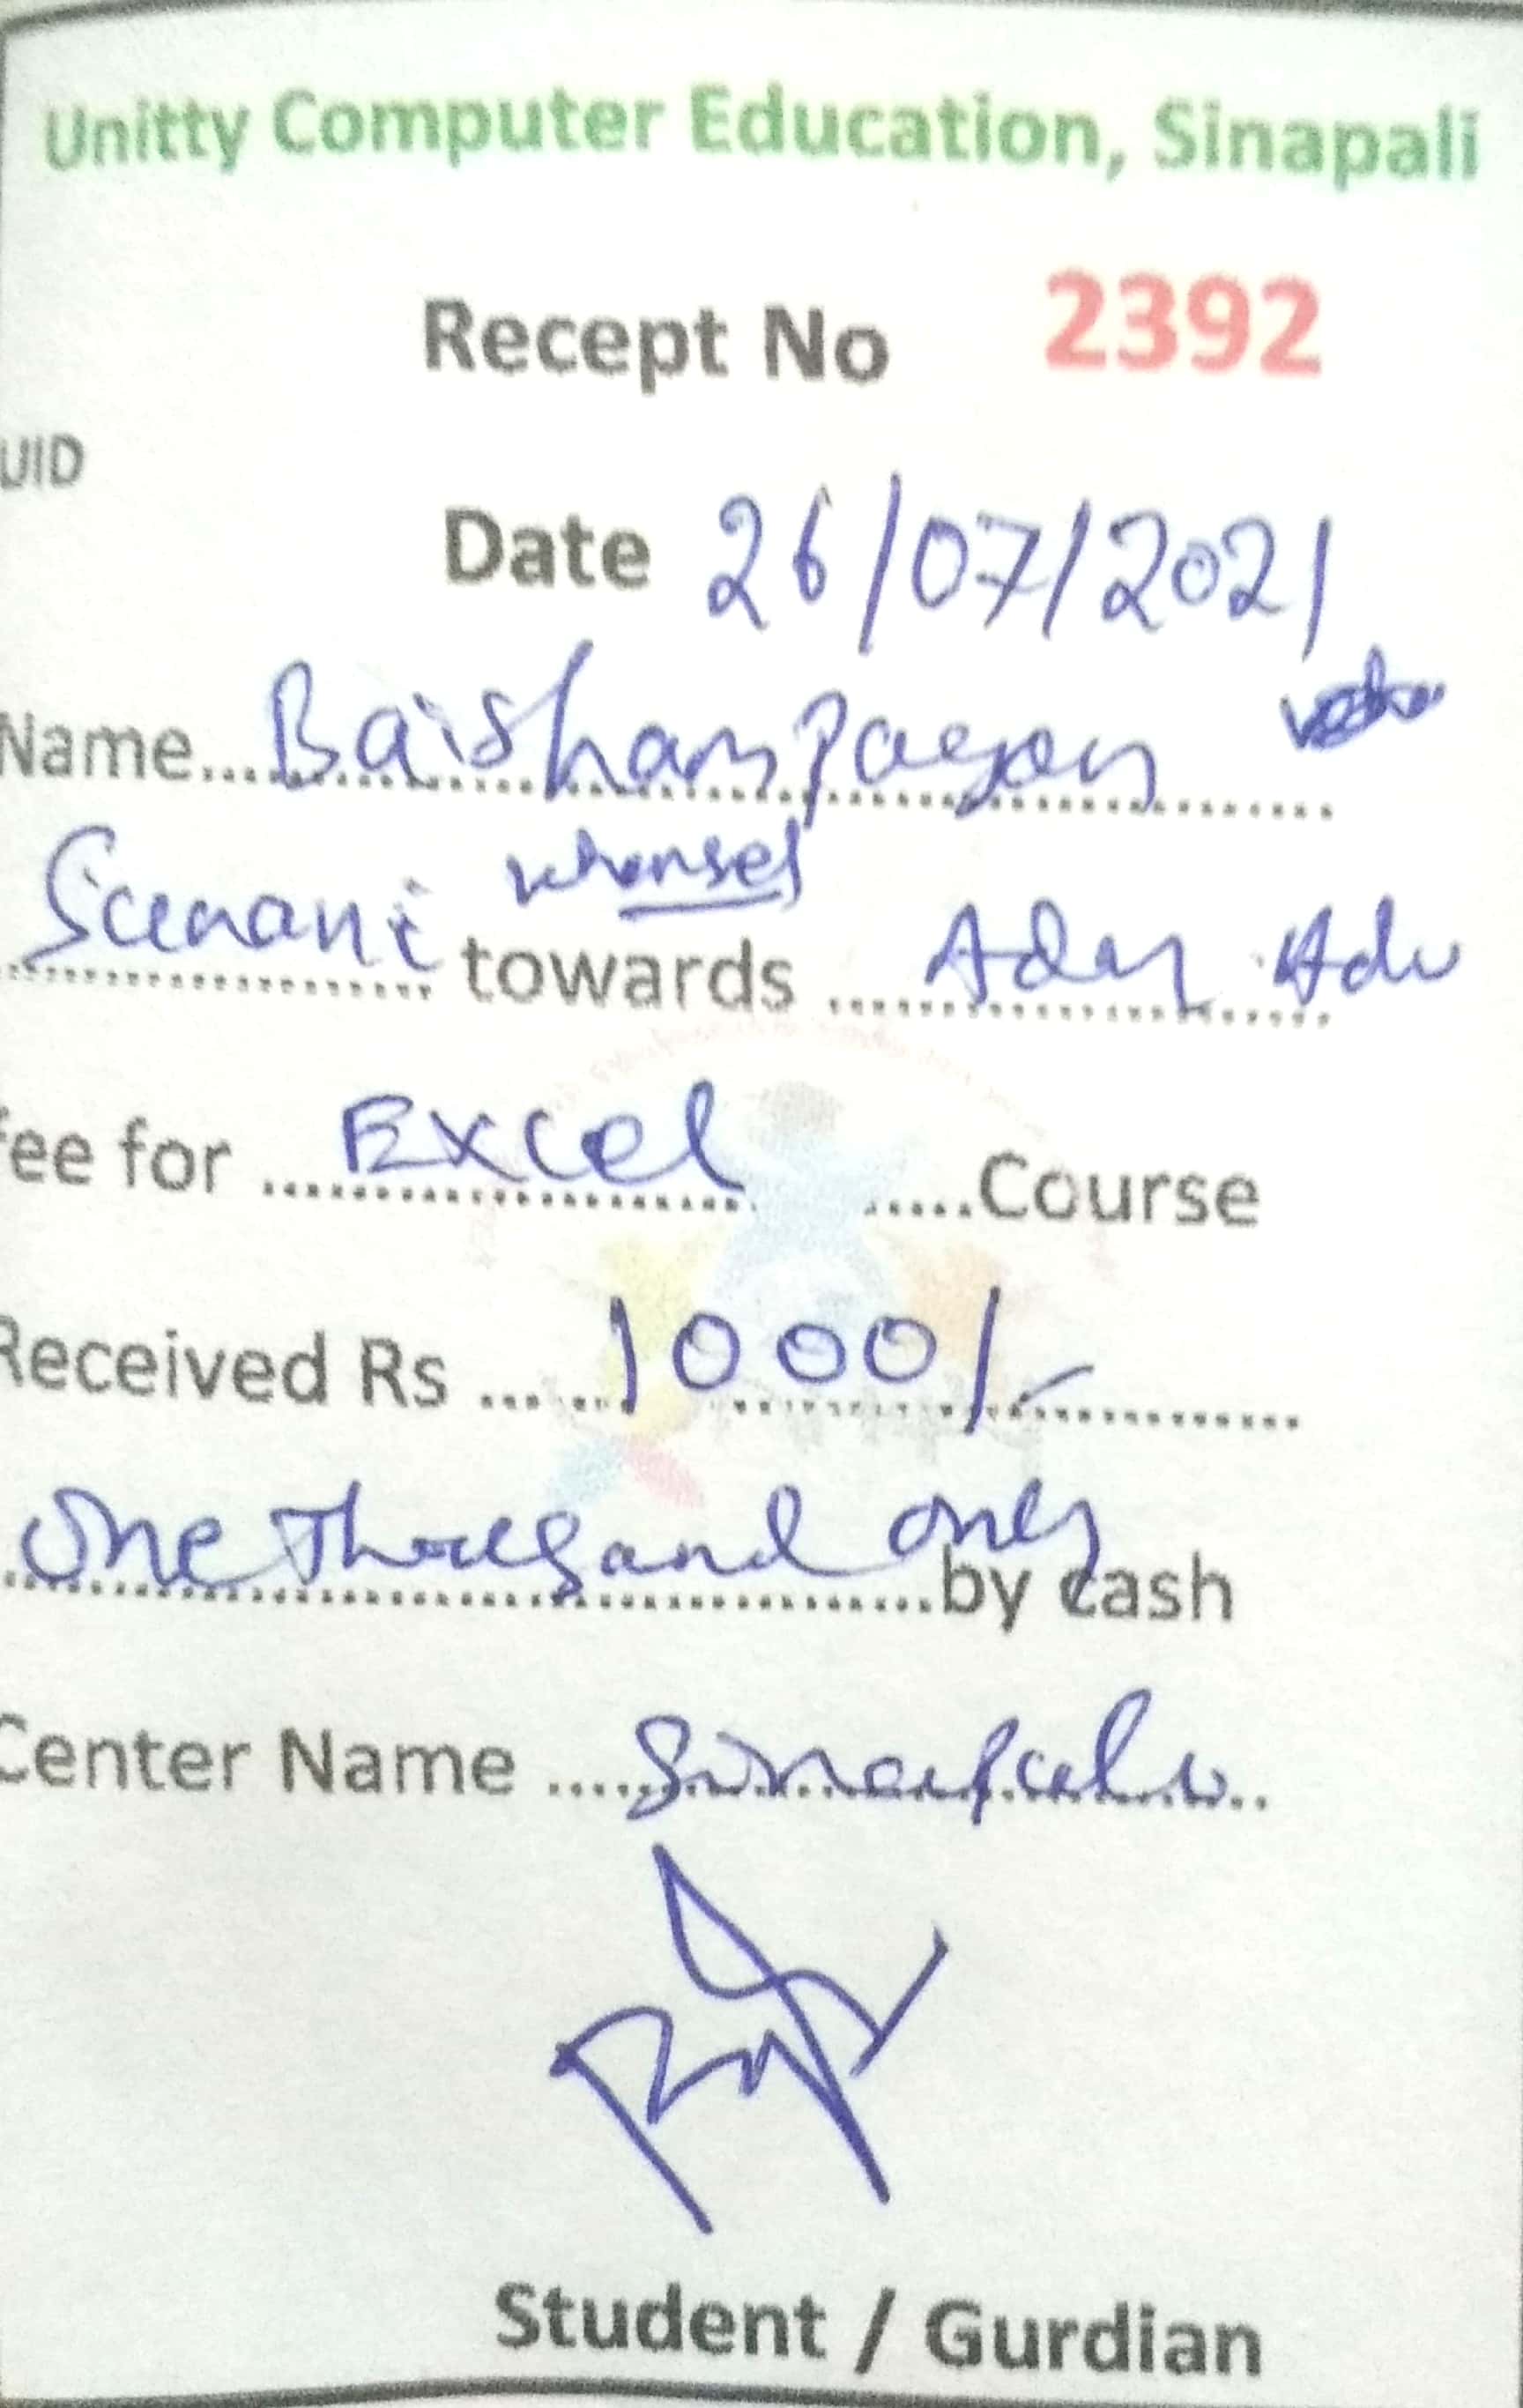 Unitty Computer Education, Sinapali
Recept No 2392
UID
Date 26/07/2021
Name... Baishampayan
towards ... Adm Adv
fee for ... Excel .....Course
Received Rs ..... 1000/-
One Thousand only by cash
Center Name .... Sinapali
Student / Gurdian